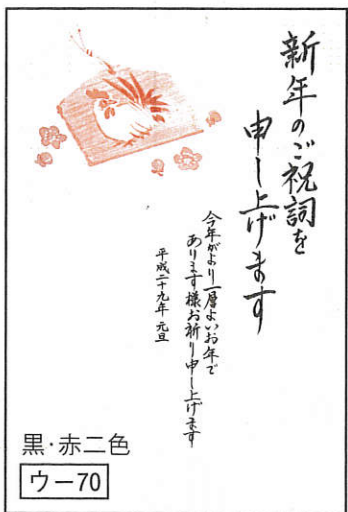 新年のご祝詞を
申し上げます
今年がより一層よいお年で
あります様お祈り申し上げます
平成二十九年 元旦
黒・赤二色
ウー70